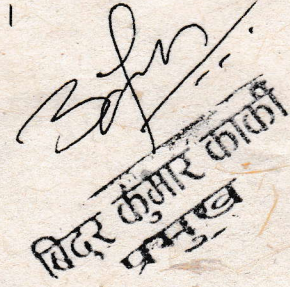 बिदुर कुमार कार्की
प्रमुख